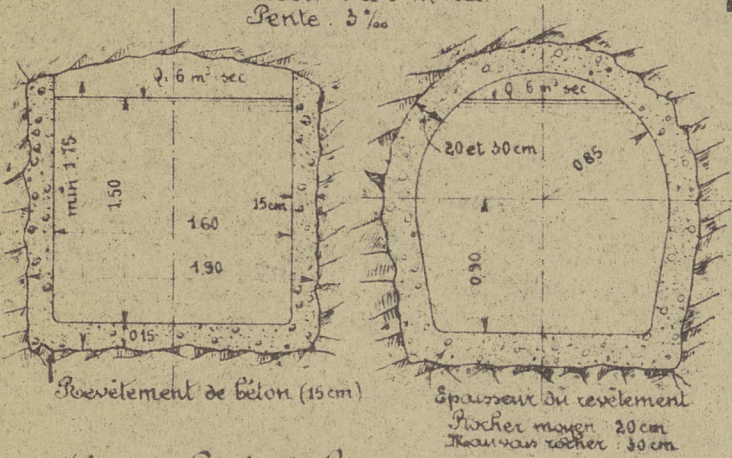 Pente. 3‰
Q. 6 m³ sec
min 1.75
1.50
15cm
1.60
1.90
015
Revêtement de béton (15cm)
Q 6 m³ sec
20 et 30cm
0.85
0.90
Epaisseur du revêtement
Rocher moyen : 20cm
Mauvais rocher : 30cm